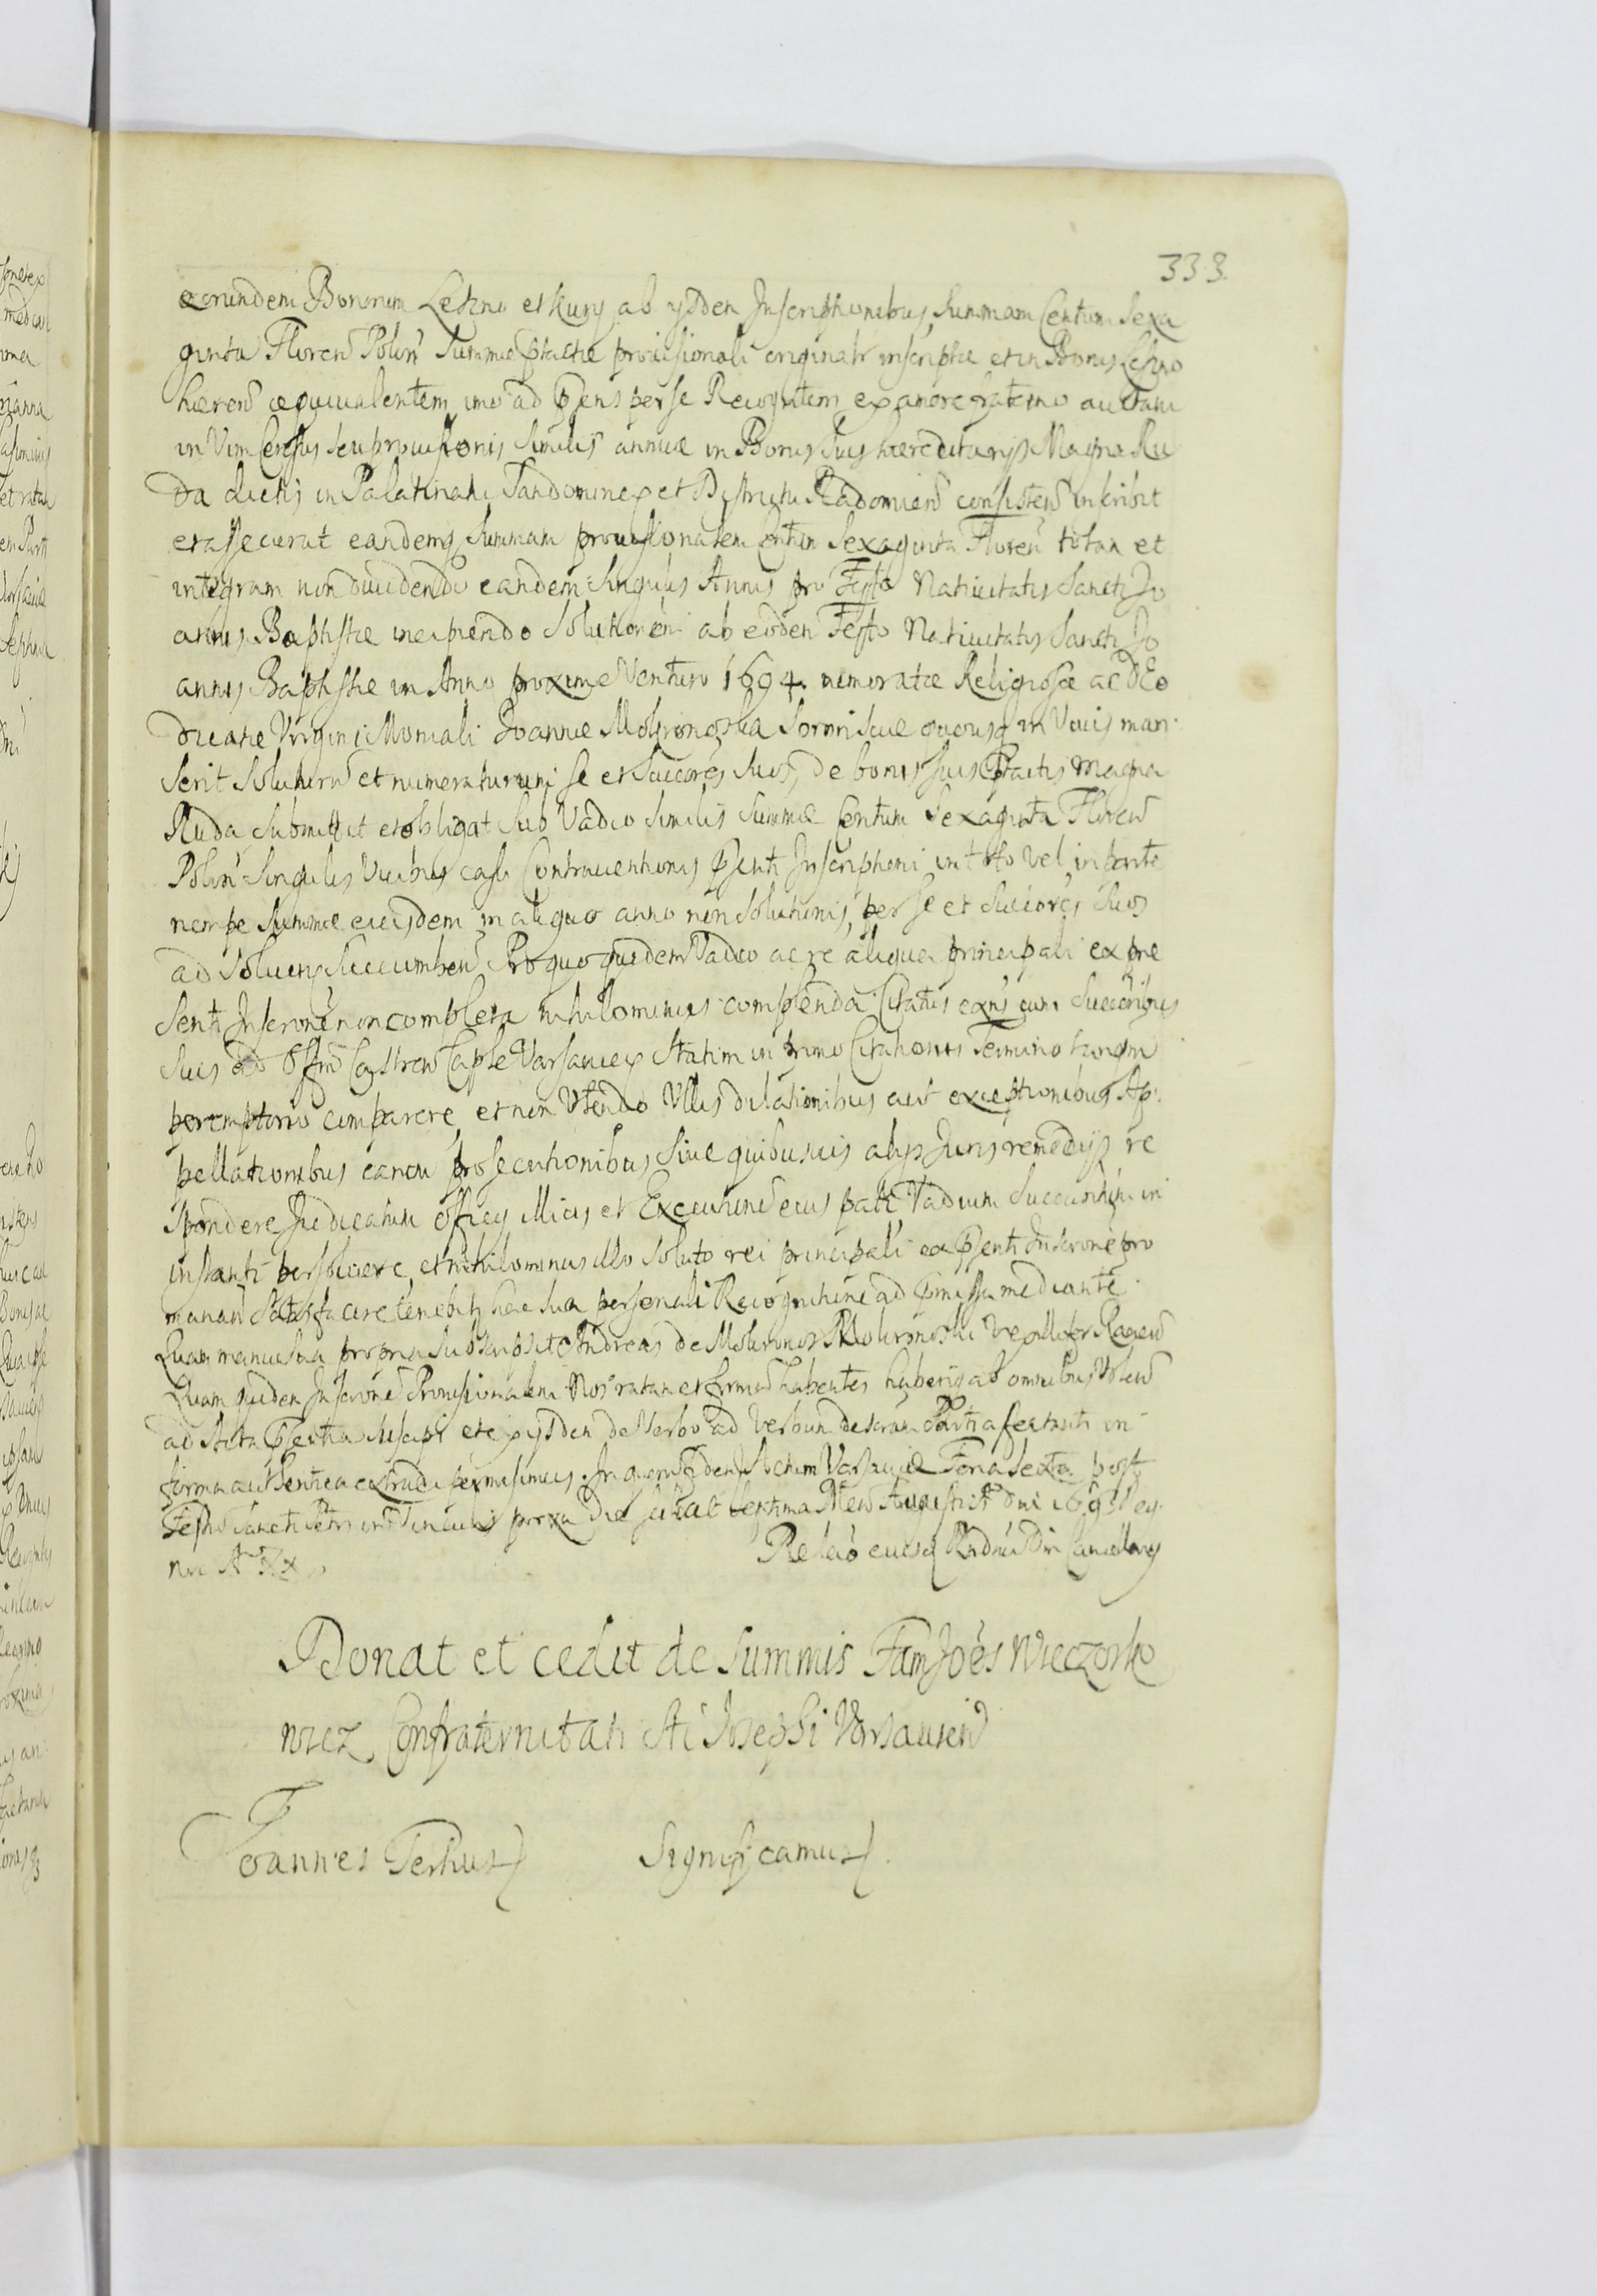 333.
eorundem Bonorum Leszno et kury ab ijsdem Inscriptionibus, Summam Centum Sexa
ginta Floren Polon Summae ptactae provisionali originalr inscriptae et in Bonis Leszno
haeren aequivalentem imo ad pñs per se Recognitam ex amore fraterno auctam
in Vim Census seu provisionis Similis annuae in Bonis Suis haereditarijs Magna Ru
da dictis in Palatinatu Sandomirien et Districtu Radomien consisten inscribit
et assecurat eandemq Summam provisionalem Centum Sexaginta Floren totam et
integram non dividendo eandem Singulis Annis pro Festo Nativitatis Sancti Jo
annis Baptistae incipiendo Solutionem ab eodem Festo Nativitatis Sancti Jo
annis Baptistae in Anno proxime Venturo 1694. memoratae Religiosae ac DEo
dicatae Virgini Moniali Joannae Mokronoska Sorori Suae quousq in Vivis man
Serit Soluturum et numeraturum se et Succores Suos, de bonis Suis ptactis Magna
Ruda Submittit et obligat Sub Vadio Similis Summae Centum Sexaginta Floren
Polon Singulis Vicibus casu Contraventionis pñti Inscriptioni in toto Vel in parte
nempe Summae eiusdem in aliquo anno non Solutionis, per Se et Succores Suos
ad Solven Succumben Pro quo quidem Vadio ac re aliqua principali ex prae
Senti Inscrone non completa nihilominus complenda Citatus exñs cum Succoribus
Suis ad Offm Castren Caple Varsavien Statim in primo Citationis Termino tanqm
peremptorio comparere, et non Utendo Ullis dilationibus aut exceptionibus Ap-
pellationibus earum prosecutionibus Sive quibusvis alijs Juris remedijs re
Spondere Judicatum Officij illius et Executionem eius pati Vadium Succumbens in
instanti persolvere, et nihilominus illo Soluto rei principali ex pñti Inscrone pro
manan Satisfacere tenebitr hac Sua personali Recognitione ad pmissa mediante.
Quam manu Sua propria Subscripsit Andreas de Mokronosy Mokronoski Vexillifer Raven
Quam quidem Inscronem Provisionalem Nos ratam et firmam habentes haberiq ab omnibus Volen
ad Acta pñtia Suscipi et ex ijsdem de Verbo ad Verbum descran Parti affectanti in
forma authentica extradi permisimus. In quorum fidem Actum Varsaviae Feria Sexta post
Festum Sancti Petri in Vinculis proxa die Scilicet Septima Mens Augusti A Dni 1693 Reg-
nri A XX.
Relaō eiusq Rndmi Dni Cancellarij
Donat et cedit de Summis Fam Joēs Wieczorko
wicz Confraternitati Sti Josephi Varsavien
Joannes Tertius Significamus.